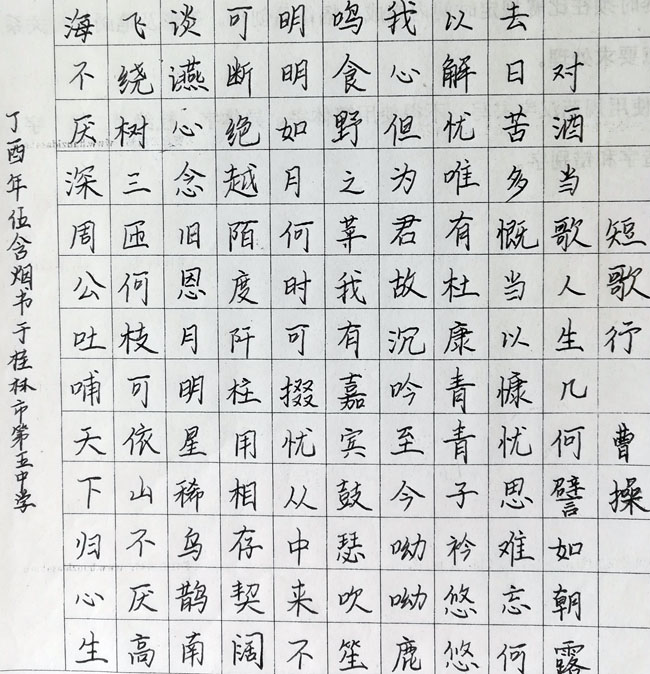 短歌行 曹操
对酒当歌人生几何譬如朝露
去日苦多慨当以慷忧思难忘何
以解忧唯有杜康青青子衿悠悠
我心但为君故沉吟至今呦呦鹿
鸣食野之苹我有嘉宾鼓瑟吹笙
明明如月何时可掇忧从中来不
可断绝越陌度阡枉用相存契阔
谈讌心念旧恩月明星稀乌鹊南
飞绕树三匝何枝可依山不厌高
海不厌深周公吐哺天下归心生
丁酉年伍含烟书于桂林市第五中学